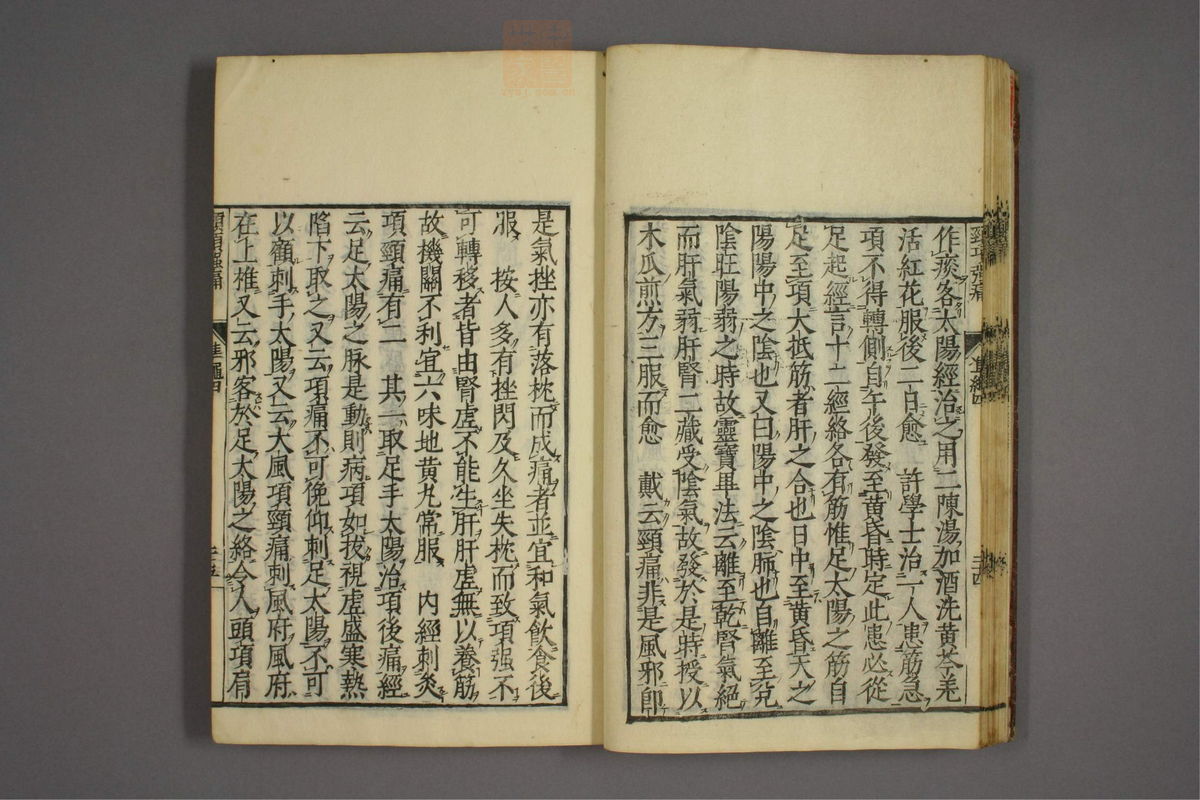 頸項强痛
準繩四
三四
作痰客太陽經治之用二陳湯加酒洗黃芩羌
活紅花服後二日愈　許學士治一人患筋急
項不得轉側自午後發至黃昏時定此患必從
足起經言十二經絡各有筋惟足太陽之筋自
足至項大抵筋者肝之合也日中至黃昏天之
陽陽中之陰也又曰陽中之陰肺也自離至兌
陰旺陽弱之時故靈寶畢法云離至乾腎氣絕
而肝氣弱肝腎二藏受陰氣故發於是時授以
木瓜煎方三服而愈　戴云頸痛非是風邪卽
是氣挫亦有落枕而成痛者並宜和氣飲食後
服　按人多有挫閃及久坐失枕而致項强不
可轉移者皆由腎虛不能生肝肝虛無以養筋
故機關不利宜六味地黃丸常服　内經刺灸
項頸痛有二　其一取足手太陽治項後痛經
云足太陽之脉是動則病項如拔視虛盛寒熱
陷下取之又云項痛不可俛仰刺足太陽不可
以顧刺手太陽又云大風項頸痛刺風府風府
在上椎又云邪客於足太陽之絡令人頭項肩
頸項强痛
準繩四
三五